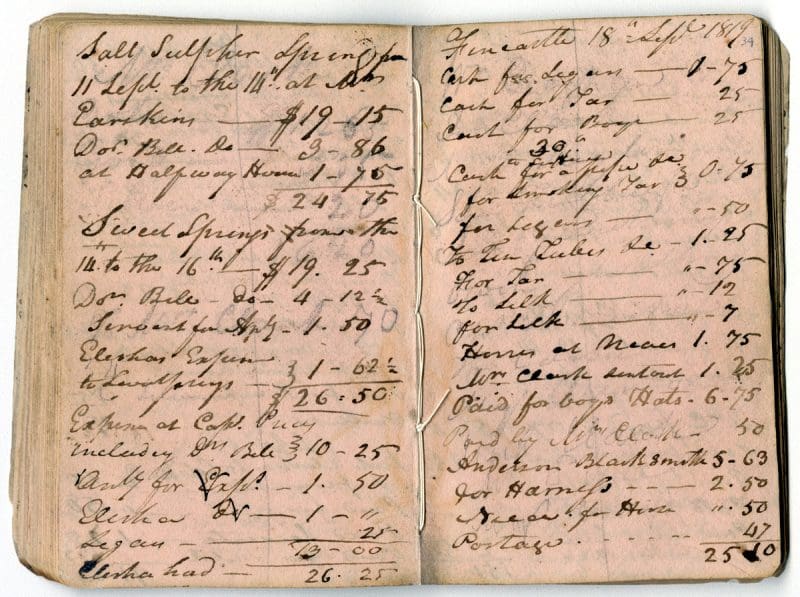 Salt Sulpher Springs from
11 Sept. to the 14th. at Mrs
Earskins — $ 19 - 15
Dor. Bill. do — 3 - 86
at Halfway House 1 - 75
$ 24 75
Sweed Springs from the
14 to the 16th. — $ 19. 25
Dor. Bill - do - 4 - 12½
Servest for Apl - 1. 50
Eleshas Expen
to Sweetsprings — 1 - 62½
$ 26 = 50
Expense at Capt. Prices
including Drs Bill 10 - 25
for Exps. - 1. 50
Elesha Do — 1 - "
Segars — 25
13 - 00
Elesha had — 26. 25
Fincastle 18th Sept. 1819
34
Cash for Segars — 0 - 75
Cash for Tar — 25
Cash for Boys — 25
Cash for a pipe &c
for Smoking Tar 0 - 75
for Segars — " - 50
To Ten Tubes &c - 1. 25
For Tar — " - 75
To Silk — " - 12
for Silk — " - 7
Horses at Neaves 1. 75
Mrs. Clark sent out 1. 25
Paid for boys Hats - 6 - 75
Paid by Mrs Clark - 50
Anderson Blacksmith 5 - 63
for Harness - - - 2. 50
for Hire ". 50
Postage - - - - - - 47
25 10